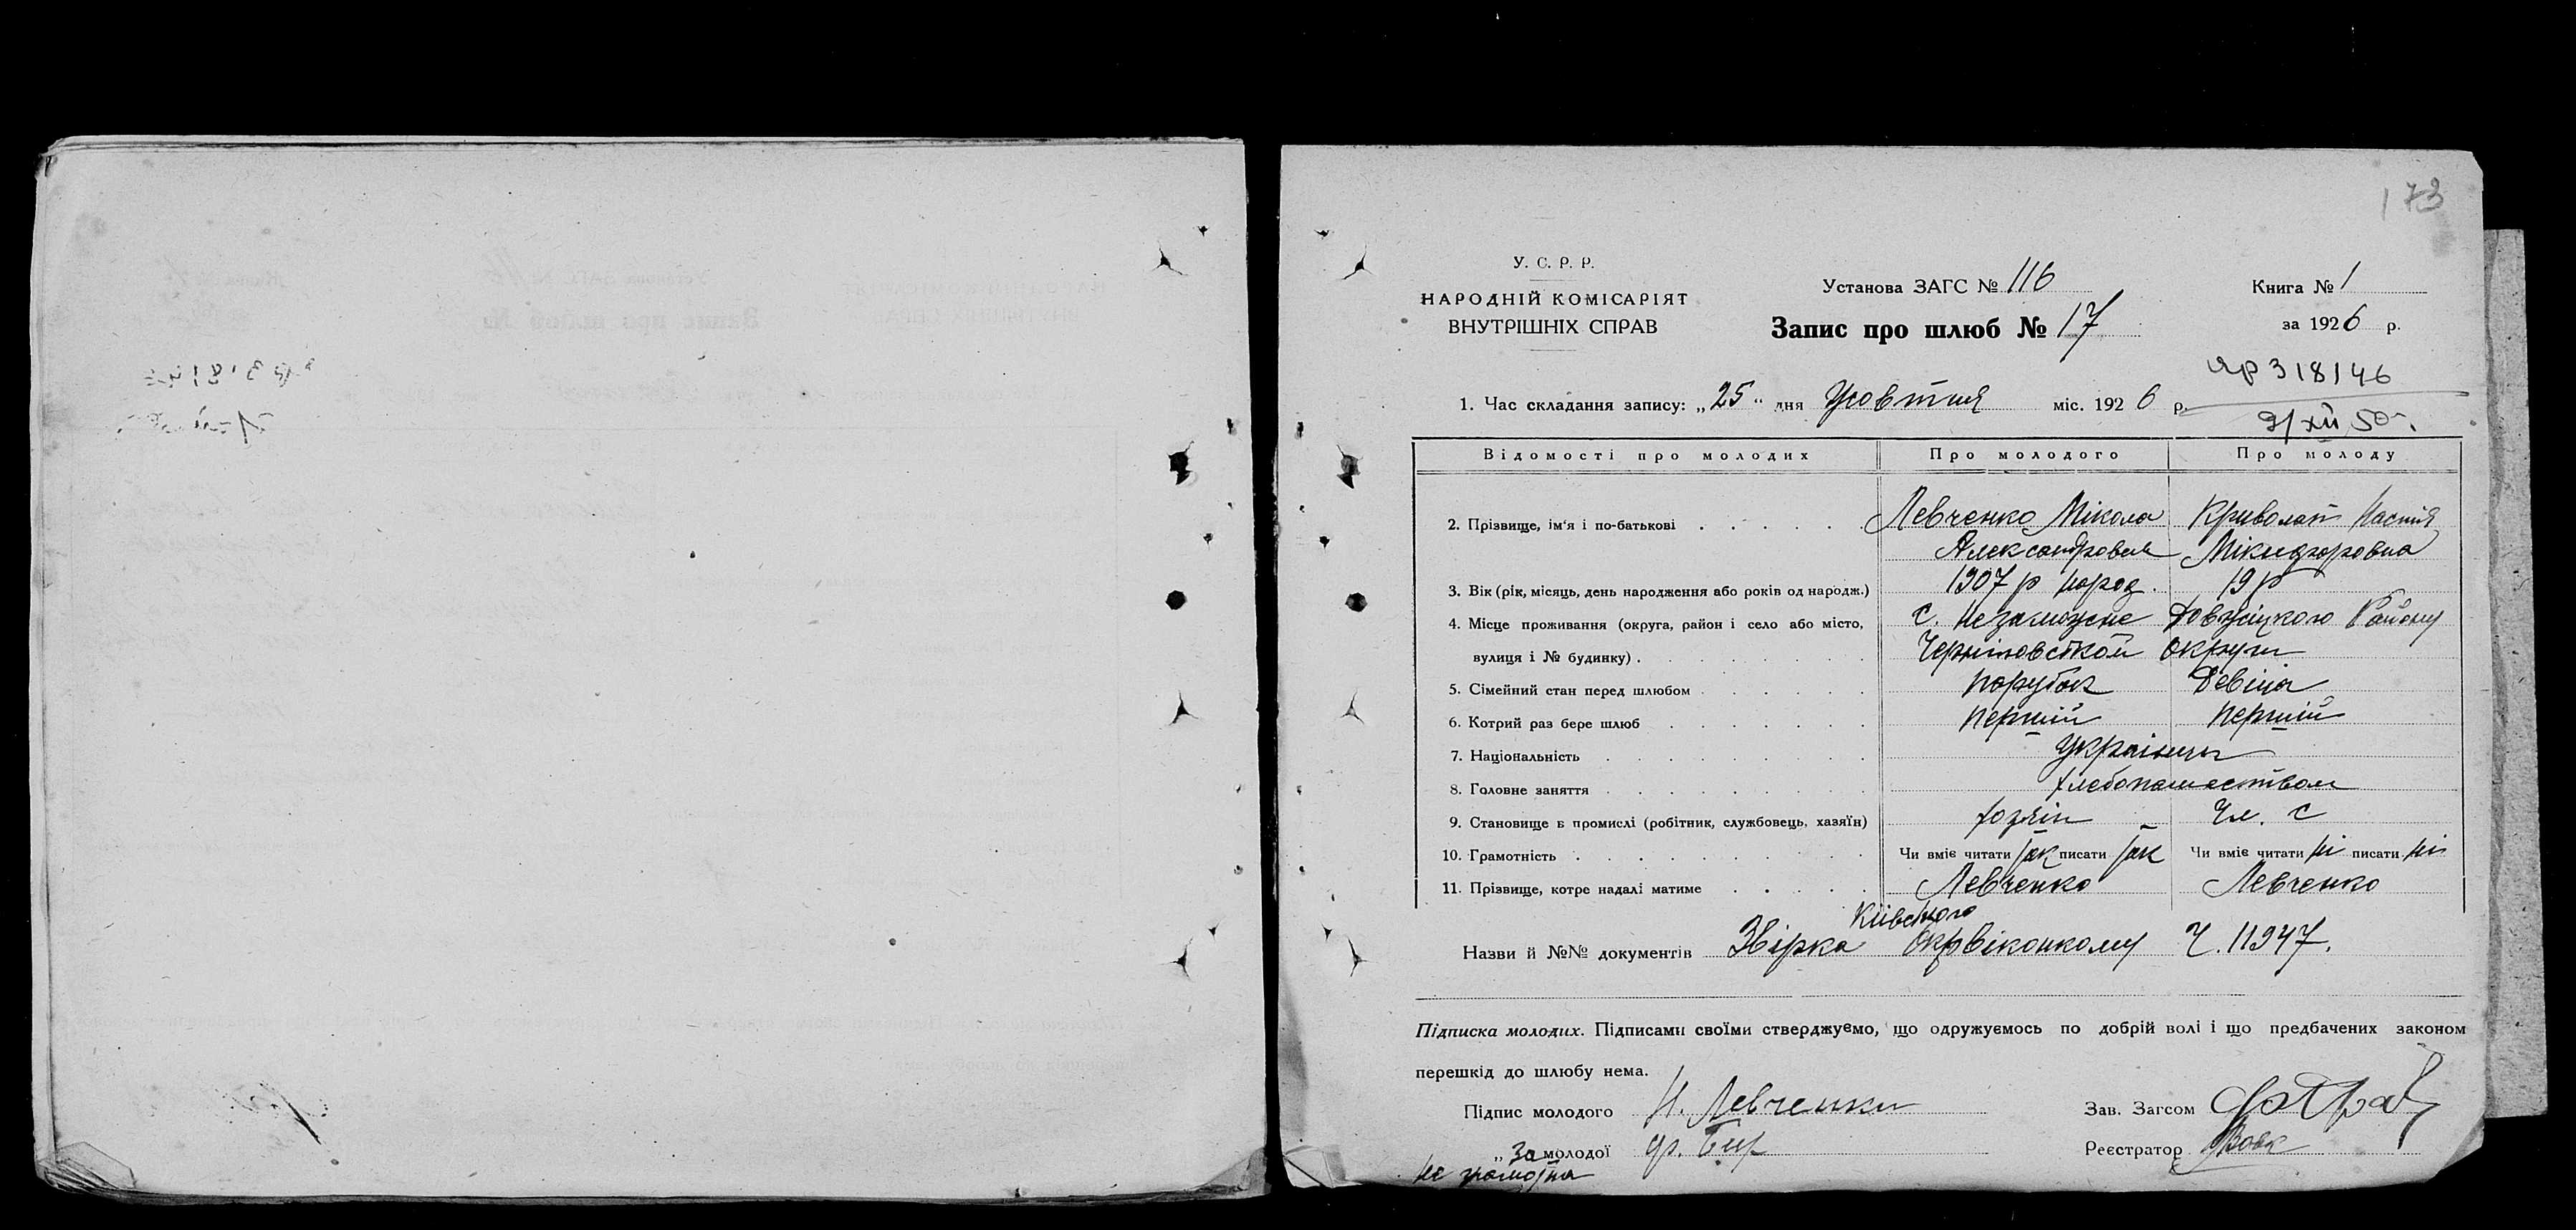 173
У. С. Р. Р.
НАРОДНІЙ КОМІСАРІЯТ
ВНУТРІШНІХ СПРАВ
Установа ЗАГС № 116
Запис про шлюб № 17
Книга № 1
за 1926 р.
ЯР 318146
9/XII 50
1. Час складання запису: „25" дня Жовтня міс. 1926 р.
Відомості про молодих Про молодого Про молоду
2. Прізвище, ім'я і по-батькові Левченко Мікола Криволап Настя
Александрович Мікифоровна
3. Вік (рік, місяць, день народження або років од народж.) 1907 р народ. 19 р
4. Місце проживання (округа, район і село або місто, с. Незаможне Довжіцкого Району
вулиця і № будинку) Черніговсткой округи
5. Сімейний стан перед шлюбом парубок Девіця
6. Котрий раз бере шлюб перший перший
7. Національність Українці
8. Головне заняття хлебопашеством
9. Становище в промислі (робітник, службовець, хазяїн) хозяін Чл. С
10. Грамотність Чи вміє читати так писати так Чи вміє читати ні писати ні
11. Прізвище, котре надалі матиме Левченко Левченко
Київського
Назви й №№ документів Звірка Окрвіконкому Ч. 11947.
Підписка молодих. Підписами своїми стверджуємо, що одружуємось по добрій волі і що предбачених законом
перешкід до шлюбу нема.
Підпис молодого Н. Левченко
Зав. Загсом
„ За молодої
Реєстратор Вовк
не грамотна